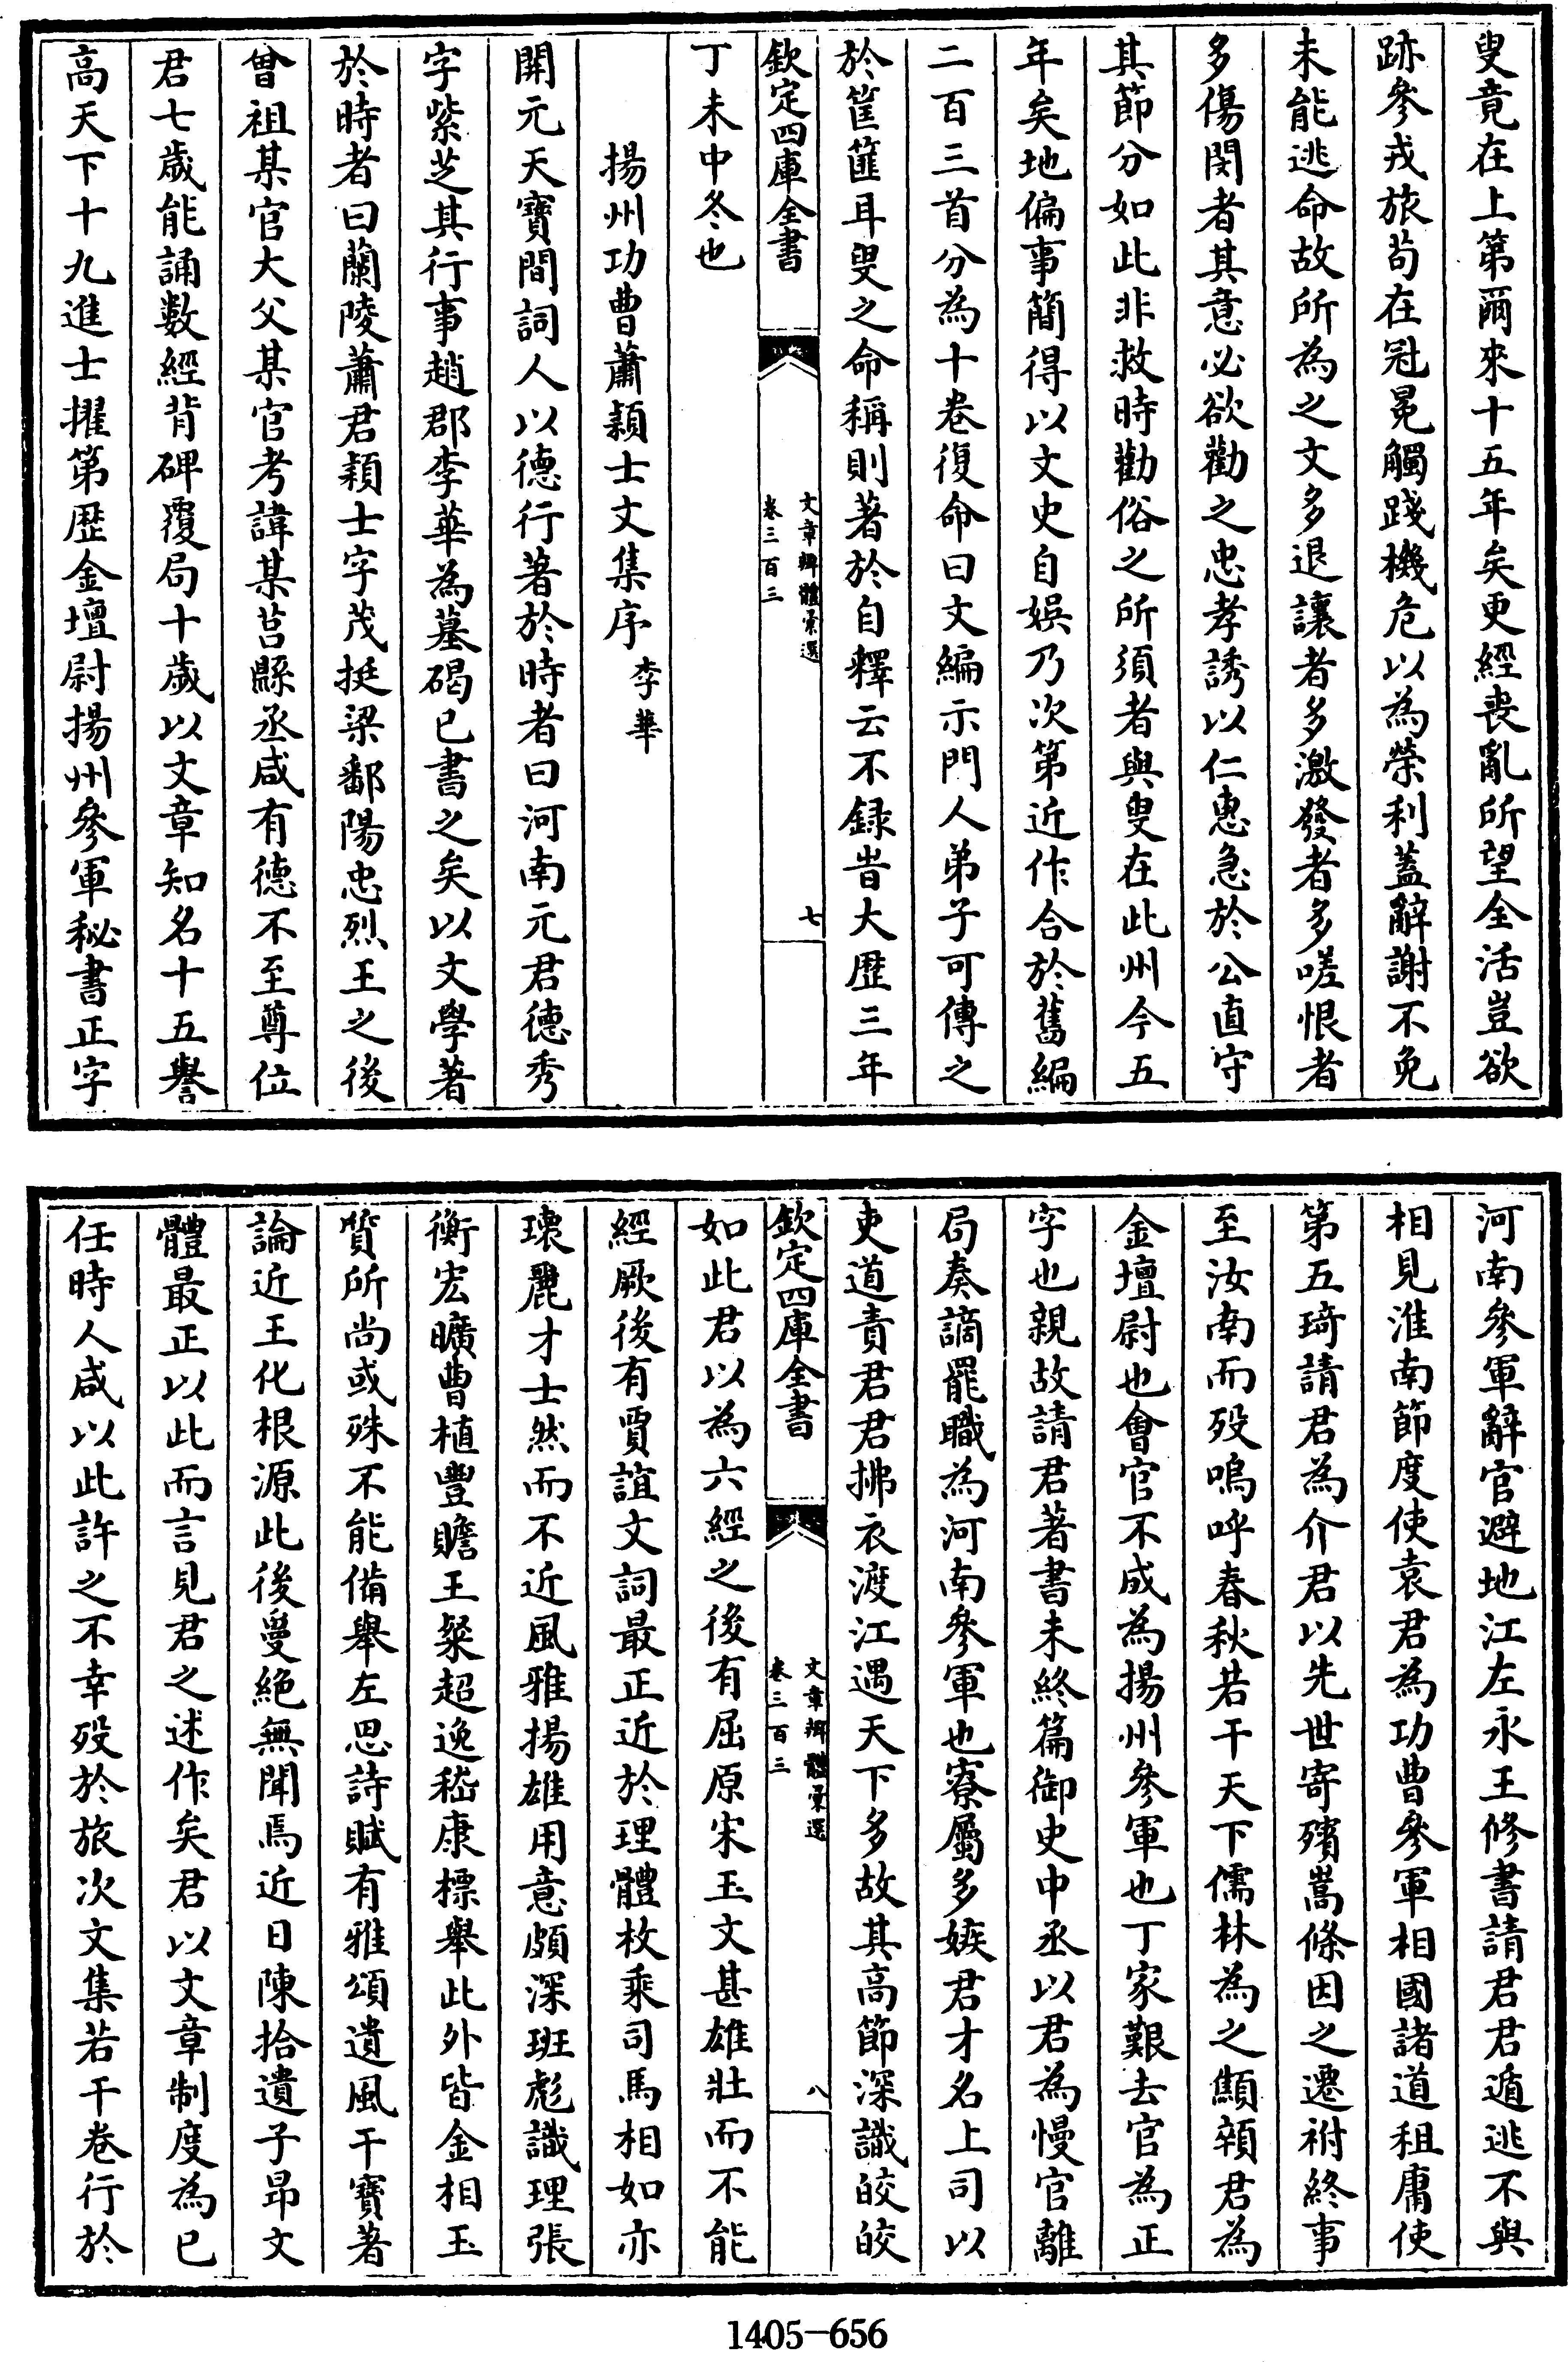 叟竟在上第爾來十五年矣更經喪亂所望全活豈欲
跡參戎旅茍在冠冕觸踐機危以為榮利蓋辭謝不免
未能逃命故所為之文多退讓者多激發者多嗟恨者
多傷閔者其意必欲勸之忠孝誘以仁惠急於公直守
其節分如此非救時勸俗之所須者與叟在此州今五
年矣地偏事簡得以文史自娛乃次第近作合於舊編
二百三首分為十卷復命曰文編示門人弟子可傳之
於筐篚耳叟之命稱則著於自釋云不錄旹大歴三年
欽定四庫全書
文章辨體彚選
卷三百三
七
丁未中冬也
揚州功曹蕭穎士文集序 李華
開元天寶間詞人以德行著於時者曰河南元君德秀
字紫芝其行事趙郡李華為墓碣已書之矣以文學著
於時者曰蘭陵蕭君穎士字茂挺梁鄱陽忠烈王之後
曾祖某官大父某官考諱某莒縣丞咸有德不至尊位
君七歲能誦數經背碑覆局十歲以文章知名十五譽
高天下十九進士擢第歴金壇尉揚州參軍秘書正字
河南參軍辭官避地江左永王修書請君君遁逃不與
相見淮南節度使袁君為功曹參軍相國諸道租庸使
第五琦請君為介君以先世寄殯嵩條因之遷祔終事
至汝南而歿嗚呼春秋若干天下儒林為之顦顇君為
金壇尉也會官不成為揚州參軍也丁家艱去官為正
字也親故請君著書未終篇御史中丞以君為慢官離
局奏謫罷職為河南參軍也寮屬多嫉君才名上司以
吏道責君君拂衣渡江遇天下多故其高節深識皎皎
欽定四庫全書
文章辨體彚選
卷三百三
八
如此君以為六經之後有屈原宋玉文甚雄壯而不能
經厥後有賈誼文詞最正近於理體枚乘司馬相如亦
瓌麗才士然而不近風雅揚雄用意頗深班彪識理張
衡宏曠曹植豐贍王粲超逸嵇康標舉此外皆金相玉
質所尚或殊不能備舉左思詩賦有雅頌遺風干寶著
論近王化根源此後夐絶無聞焉近日陳拾遺子昂文
體最正以此而言見君之述作矣君以文章制度為已
任時人咸以此許之不幸歿於旅次文集若干卷行於
1405-656